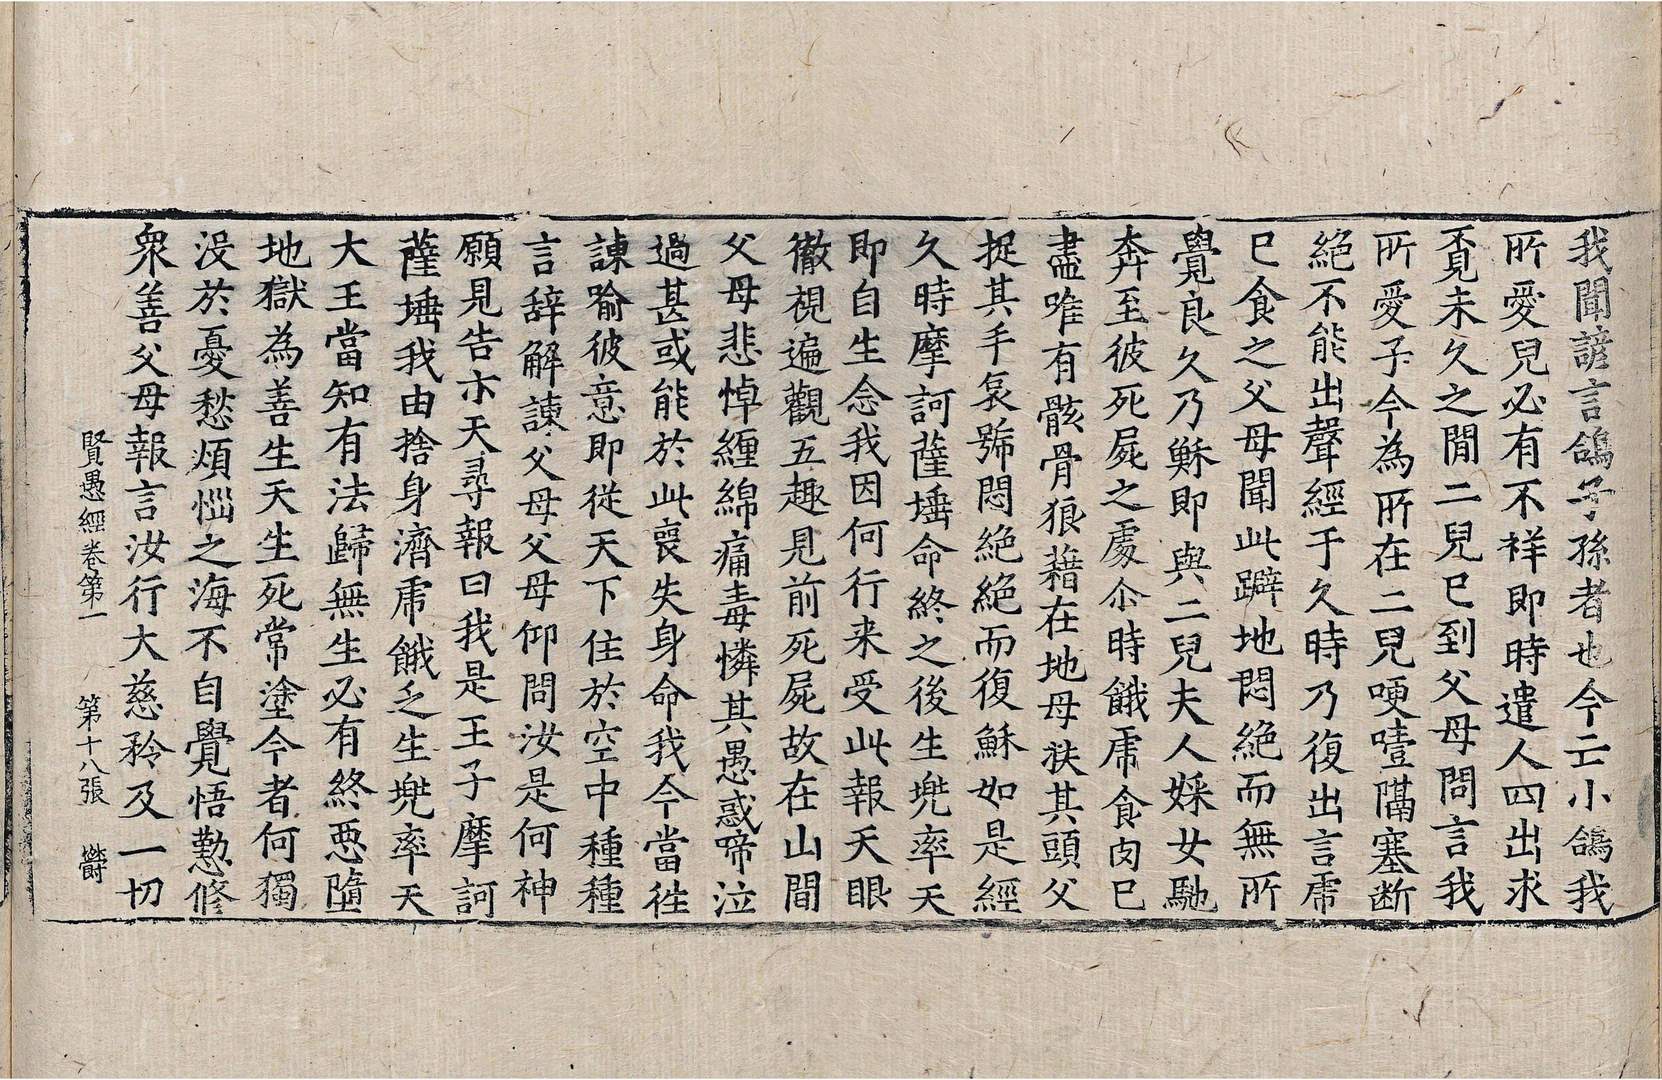 我聞諺言鴿子孫者也今亡小鴿我
所愛兒必有不祥即時遣人四出求
覔未久之間二兒已到父母問言我
所愛子今為所在二兒哽噎隔塞断
絕不能出聲經于久時乃復出言虎
已食之父母聞此躃地悶絕而無所
覺良久乃穌即與二兒夫人婇女馳
奔至彼死屍之處尒時餓虎食肉已
盡唯有骸骨狼藉在地母扶其頭父
捉其手哀號悶絕絕而復穌如是經
久時摩訶薩埵命終之後生兠率天
即自生念我因何行来受此報天眼
徹視遍觀五趣見前死屍故在山間
父母悲悼纏綿痛毒憐其愚惑啼泣
過甚或能於此喪失身命我今當徃
諫喻彼意即從天下住於空中種種
言辞解諫父母父母仰問汝是何神
願見告示天尋報曰我是王子摩訶
薩埵我由捨身濟虎餓乏生兠率天
大王當知有法歸無生必有終惡墮
地獄為善生天生死常塗今者何獨
没於憂愁煩惱之海不自覺悟懃修
衆善父母報言汝行大慈矜及一切
賢愚經卷第一 第十八張 欝